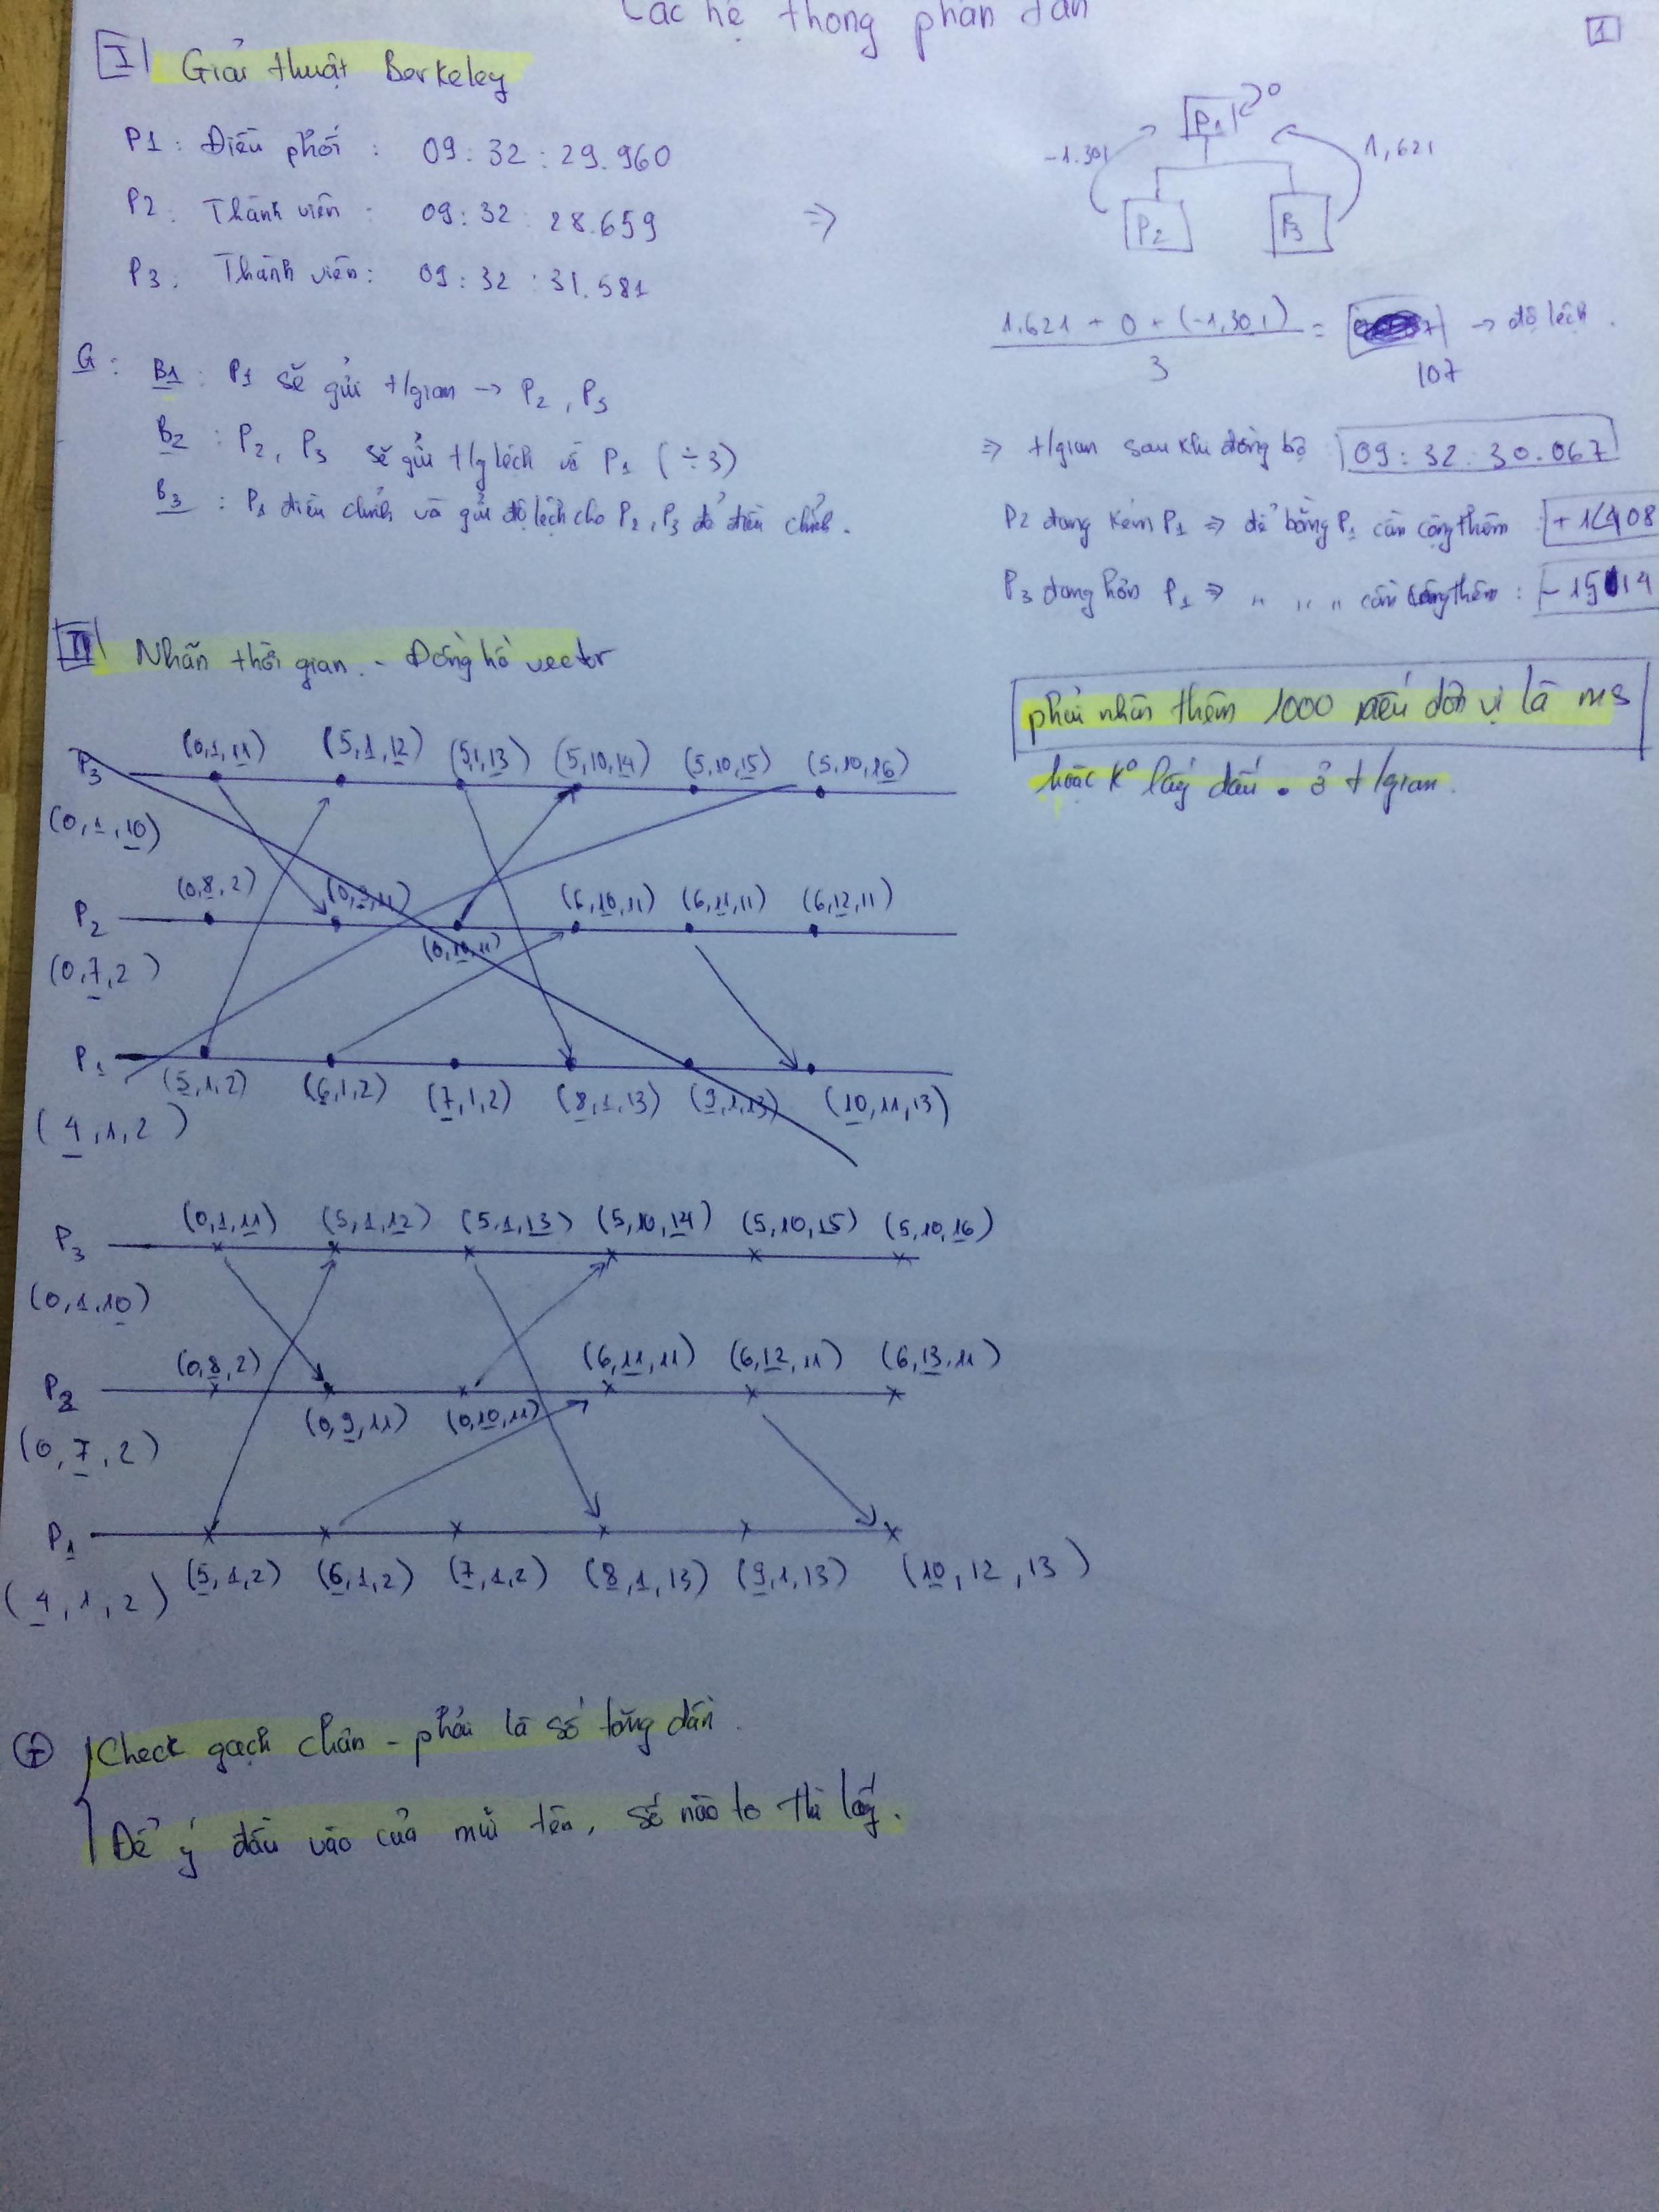 Các hệ thống phân tán
1
I Giải thuật Berkeley
P1 : Điều phối : 09 : 32 : 29.960
P2 : Thành viên : 09 : 32 : 28.659
P3 : Thành viên : 09 : 32 : 31.581
⇒
P1 0
-1.301
1,621
P2 P3
1.621 + 0 + (-1,301) / 3 = → độ lệch .
107
G : B1 : P1 sẽ gửi t/gian → P2 , P3
B2 : P2 , P3 sẽ gửi t/g lệch về P1 ( ÷ 3 )
B3 : P1 điều chỉnh và gửi độ lệch cho P2 , P3 để điều chỉnh .
⇒ t/gian sau khi đồng bộ 09 : 32 : 30.067
P2 đang kém P1 ⇒ để bằng P1 cần cộng thêm + 1408
P3 đang hơn P1 ⇒ " " " cần cộng thêm : - 1514
phải nhân thêm 1000 nếu đơn vị là ms
hoặc k° lấy dấu . ở t/gian .
II Nhãn thời gian - Đồng hồ vector
P3 (0,1,11) (5,1,12) (5,1,13) (5,10,14) (5,10,15) (5,10,16)
(0,1,10)
P2 (0,8,2) (0,9,11) (0,10,11) (6,10,11) (6,11,11) (6,12,11)
(0,7,2)
P1 (5,1,2) (6,1,2) (7,1,2) (8,1,13) (9,1,13) (10,11,13)
(4,1,2)
P3 (0,1,11) (5,1,12) (5,1,13) (5,10,14) (5,10,15) (5,10,16)
(0,1,10)
P2 (0,8,2) (0,9,11) (0,10,11) (6,11,11) (6,12,11) (6,13,11)
(0,7,2)
P1 (5,1,2) (6,1,2) (7,1,2) (8,1,13) (9,1,13) (10,12,13)
(4,1,2)
+ Check gạch chân - phải là số tăng dần .
Để ý đầu vào của mũi tên , số nào to thì lấy .